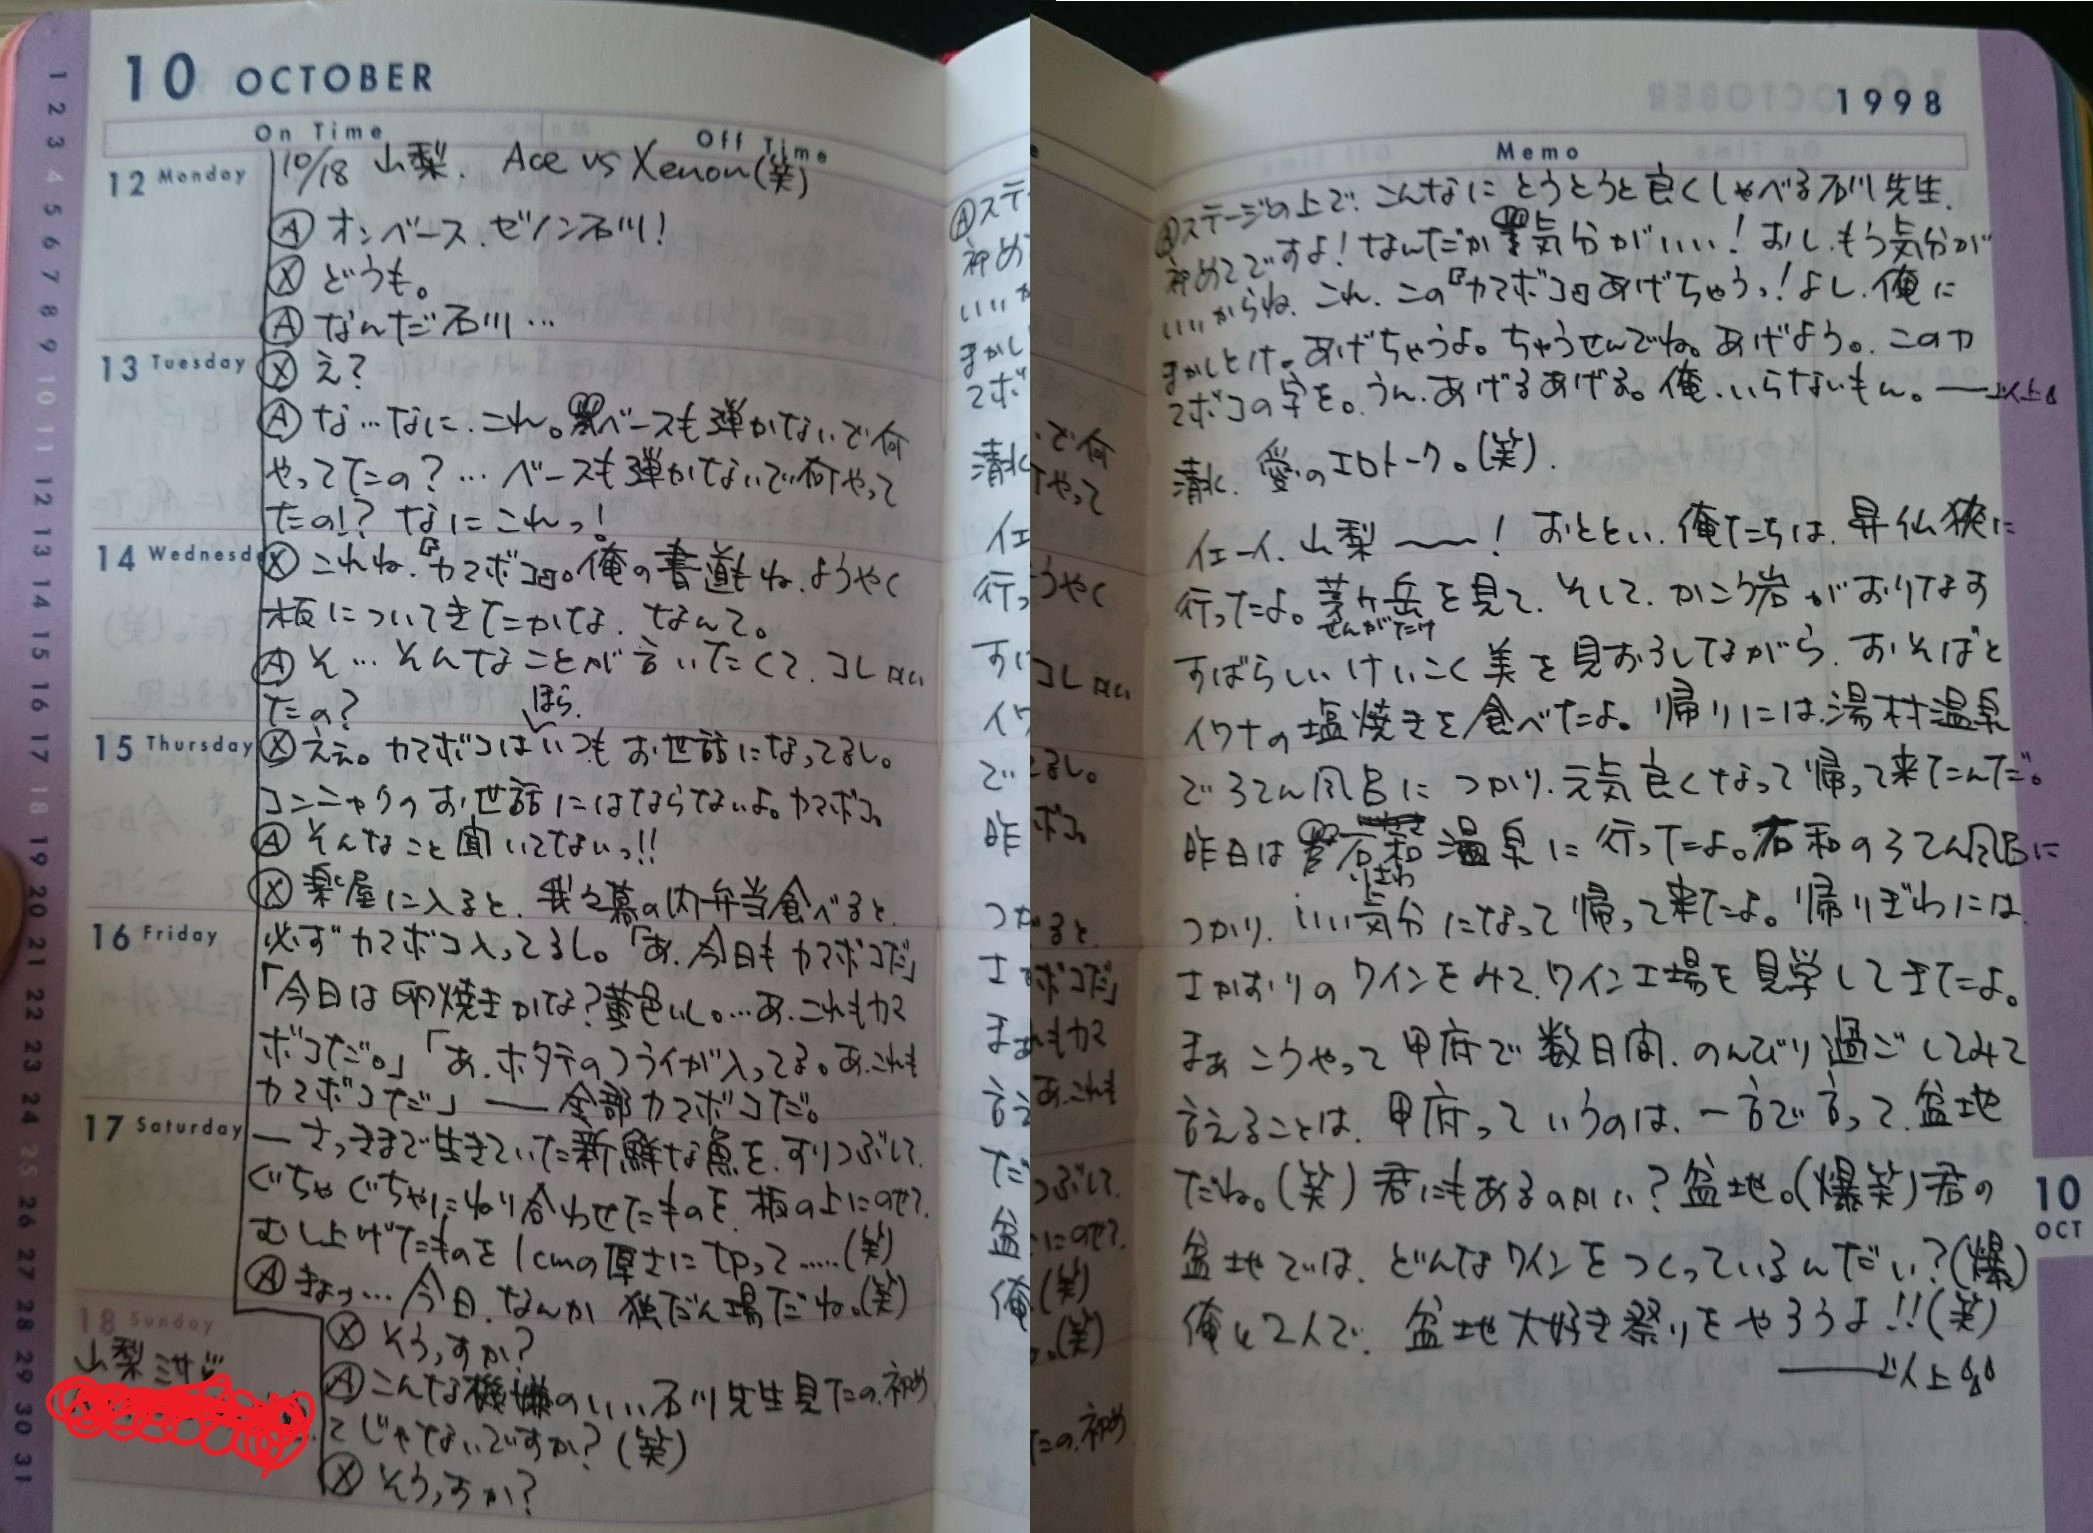 10 OCTOBER
On Time Off Time
12 Monday
10/18 山梨. Ace vs Xenon(笑)
Ⓐ オンベース、ゼノン石川!
Ⓧ どうも。
Ⓐ なんだ石川…
13 Tuesday
Ⓧ え?
Ⓐ な…なに、これ。ベースも弾かないで何
やってたの?…ベースも弾かないで何やって
たの!? なにこれっ!
14 Wednesd
Ⓧ これね、『カマボコ』。俺の書道もね、ようやく
板についてきたかな、なんて。
Ⓐ そ…そんなことが言いたくて、コレ
たの?
15 Thursday
ほら、
Ⓧ ええ。カマボコはいつもお世話になってるし。
コンニャクのお世話にはならないよ。カマボコ。
Ⓐ そんなこと聞いてないっ!!
Ⓧ 楽屋に入ると、我々幕の内弁当食べると、
16 Friday
必ずカマボコ入ってるし。「あ、今日もカマボコだ」
「今日は卵焼きかな?黄色いし。…あ、これもカマ
ボコだ。」「あ、ホタテのフライが入ってる。あ、これも
カマボコだ」――全部カマボコだ。
17 Saturday
―さっきまで生きていた新鮮な魚を、すりつぶして、
ぐちゃぐちゃにねり合わせたものを、板の上にのせて、
むし上げたものを1cmの厚さに切って……(笑)
Ⓐ きょっ…今日、なんか独だん場だね。(笑)
18 Sunday
山梨ミサ
Ⓧ そうっすか?
Ⓐ こんな機嫌のいい石川先生見たの、初め
てじゃないですか?(笑)
Ⓧ そうっすか?
1998
Memo
Ⓐステージの上で、こんなにとうとうと良くしゃべる石川先生、
初めてですよ!なんだか気分がいい!よし、もう気分が
いいからね、これ、この『カマボコ』あげちゃうっ!よし、俺に
まかしとけ。あげちゃうよ。ちゅうせんでね。あげよう。このカ
マボコの字を。うん、あげるあげる。俺、いらないもん。――以上
清水、愛のエロトーク。(笑).
イエーイ、山梨――!おととい、俺たちは、昇仙狭に
行ったよ。茅ヶ岳を見て、そして、かこう岩がおりなす
せんがだけ
すばらしいけいこく美を見おろしながら、おそばと
イワナの塩焼きを食べたよ。帰りには、湯村温泉
でろてん風呂につかり、元気良くなって帰って来たんだ。
昨日は石和温泉に行ったよ。石和のろてん風呂に
いさわ
つかり、いい気分になって帰って来たよ。帰りぎわには、
さかおりのワインをみて、ワイン工場を見学してきたよ。
まぁこうやって甲府で数日間、のんびり過ごしてみて
言えることは、甲府っていうのは、一言で言って、盆地
だね。(笑)君にもあるのかい?盆地。(爆笑)君の
盆地では、どんなワインをつくっているんだい?(爆)
俺と2人で、盆地大好き祭りをやろうよ!!(笑)
――以上
10
OCT
1
2
3
4
5
6
7
8
9
10
11
12
13
14
15
16
17
18
19
20
21
22
23
24
25
26
27
28
29
30
31